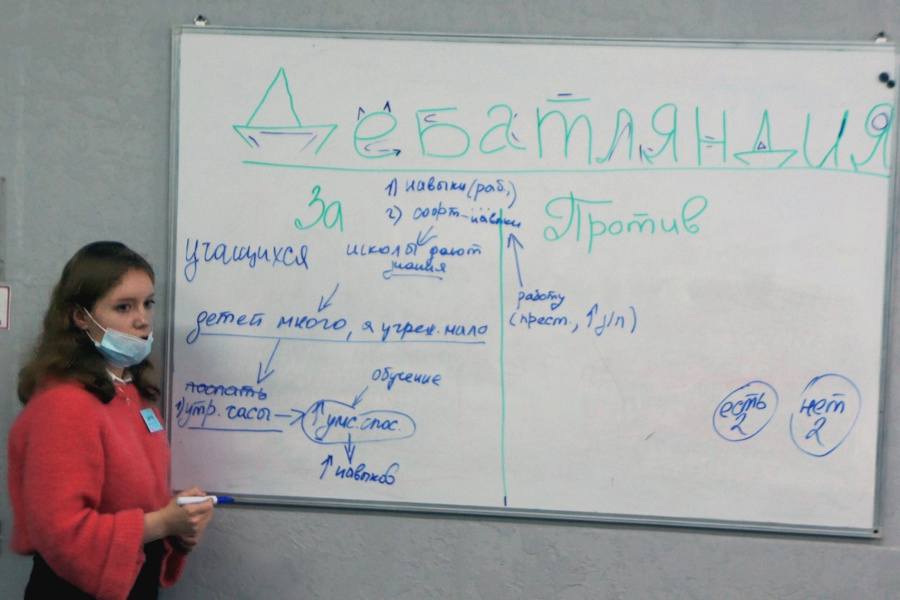 Дебатляндия
За
Против
1) навыки (раб.)
2) софт-навыки
учащихся
школы дают
знания
работу
(прест., ↑з/п)
детей много, а учреж. мало
поспать
1) утр. часы → ↑ умс. спос.
обучение
↑ навыков
есть
2
нет
2